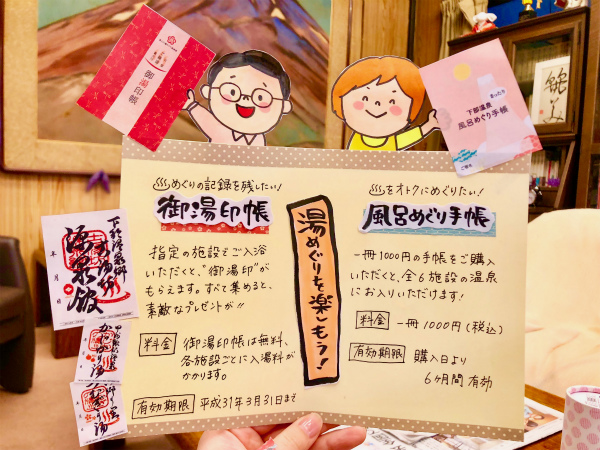 御湯印帳
下部温泉
まったり
風呂めぐり手帳
♨めぐりの記録を残したい!
御湯印帳
指定の施設でご入浴
いただくと、"御湯印"が
もらえます。すべて集めると、
素敵なプレゼントが!!
料金 御湯印帳は無料、
各施設ごとに入湯料が
かかります。
有効期限 平成31年3月31日まで
湯めぐりを楽しもう!
♨をオトクにめぐりたい!
風呂めぐり手帳
一冊1000円の手帳をご購入
いただくと、全6施設の温泉
にお入りいただけます!
料金 一冊1000円(税込)
有効期限 購入日より
6ヶ月間有効
下部温泉郷
源泉館
年 月 日